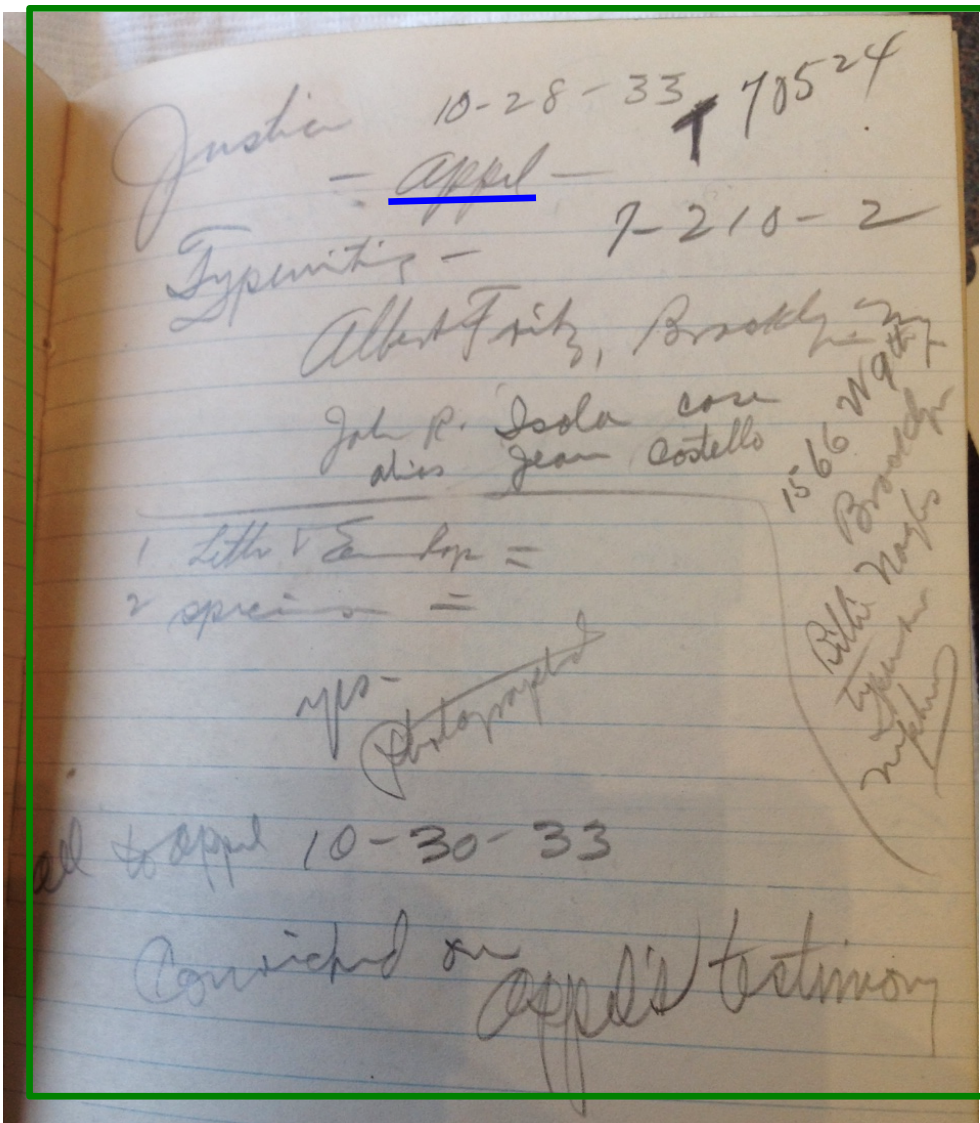 Justice 10-28-33 T 70524
- Appel -
Typewriting - 7-210-2
Albert Fritz, Brooklyn
John R. Isola case
alias Jean Costello
1566 W 9th
Brooklyn
1 Letter & Envelope =
2 specimens =
yes-
Photographed
all to Appel 10-30-33
Convicted on Appel's testimony